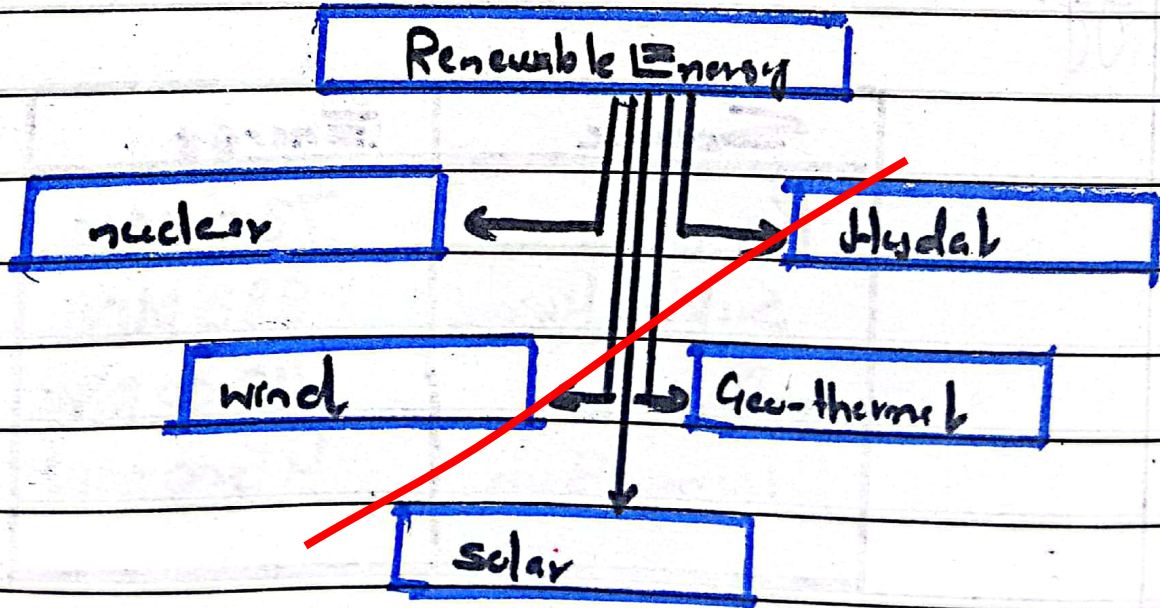 Renewable Energy
nuclear
Hydal
wind
Geo-thermal
solar